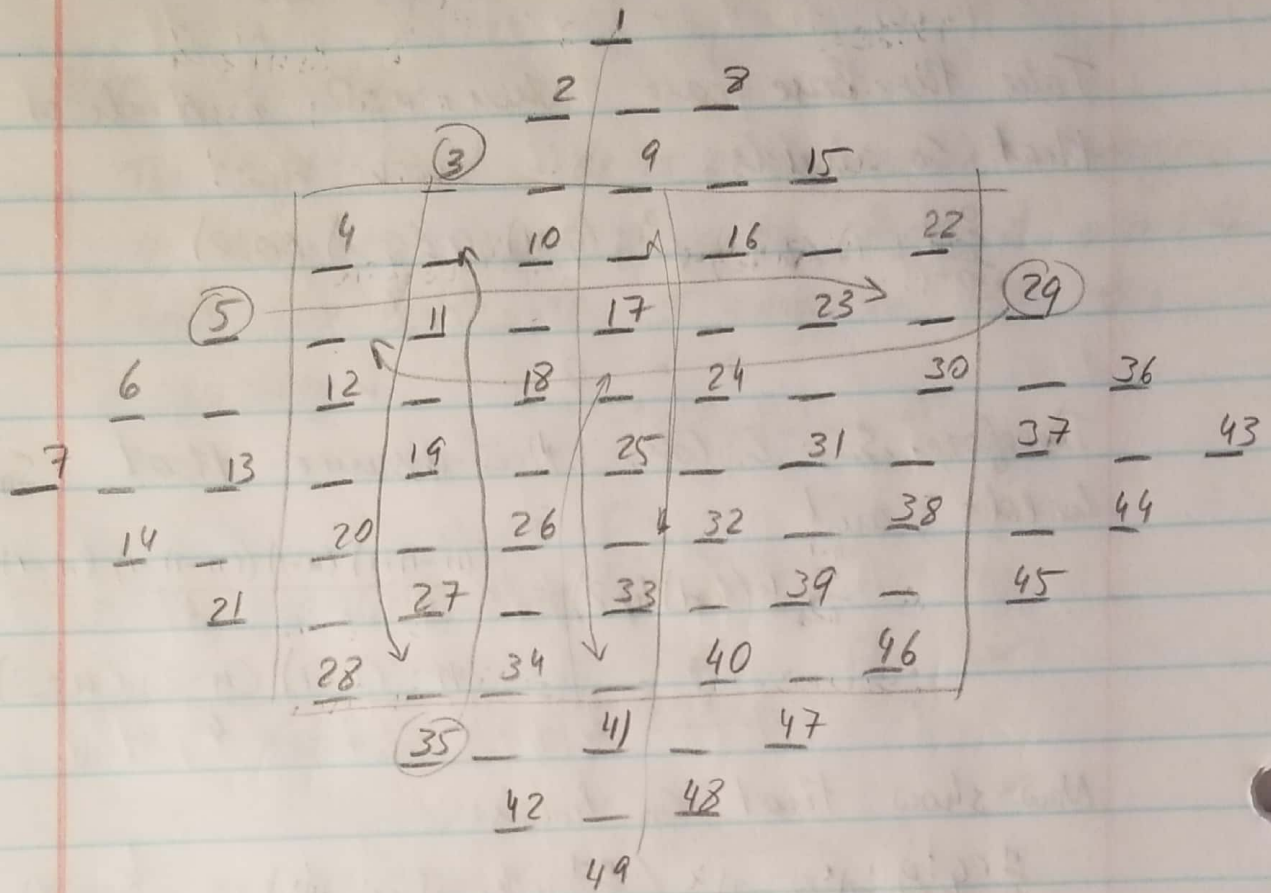 1
2 _ 8
3 _ 9 _ 15
4 _ 10 _ 16 _ 22
5 _ 11 _ 17 _ 23 _ 29
6 _ 12 _ 18 _ 24 _ 30 _ 36
7 _ 13 _ 19 _ 25 _ 31 _ 37 _ 43
14 _ 20 _ 26 _ 32 _ 38 _ 44
21 _ 27 _ 33 _ 39 _ 45
28 _ 34 _ 40 _ 46
35 _ 41 _ 47
42 _ 48
49